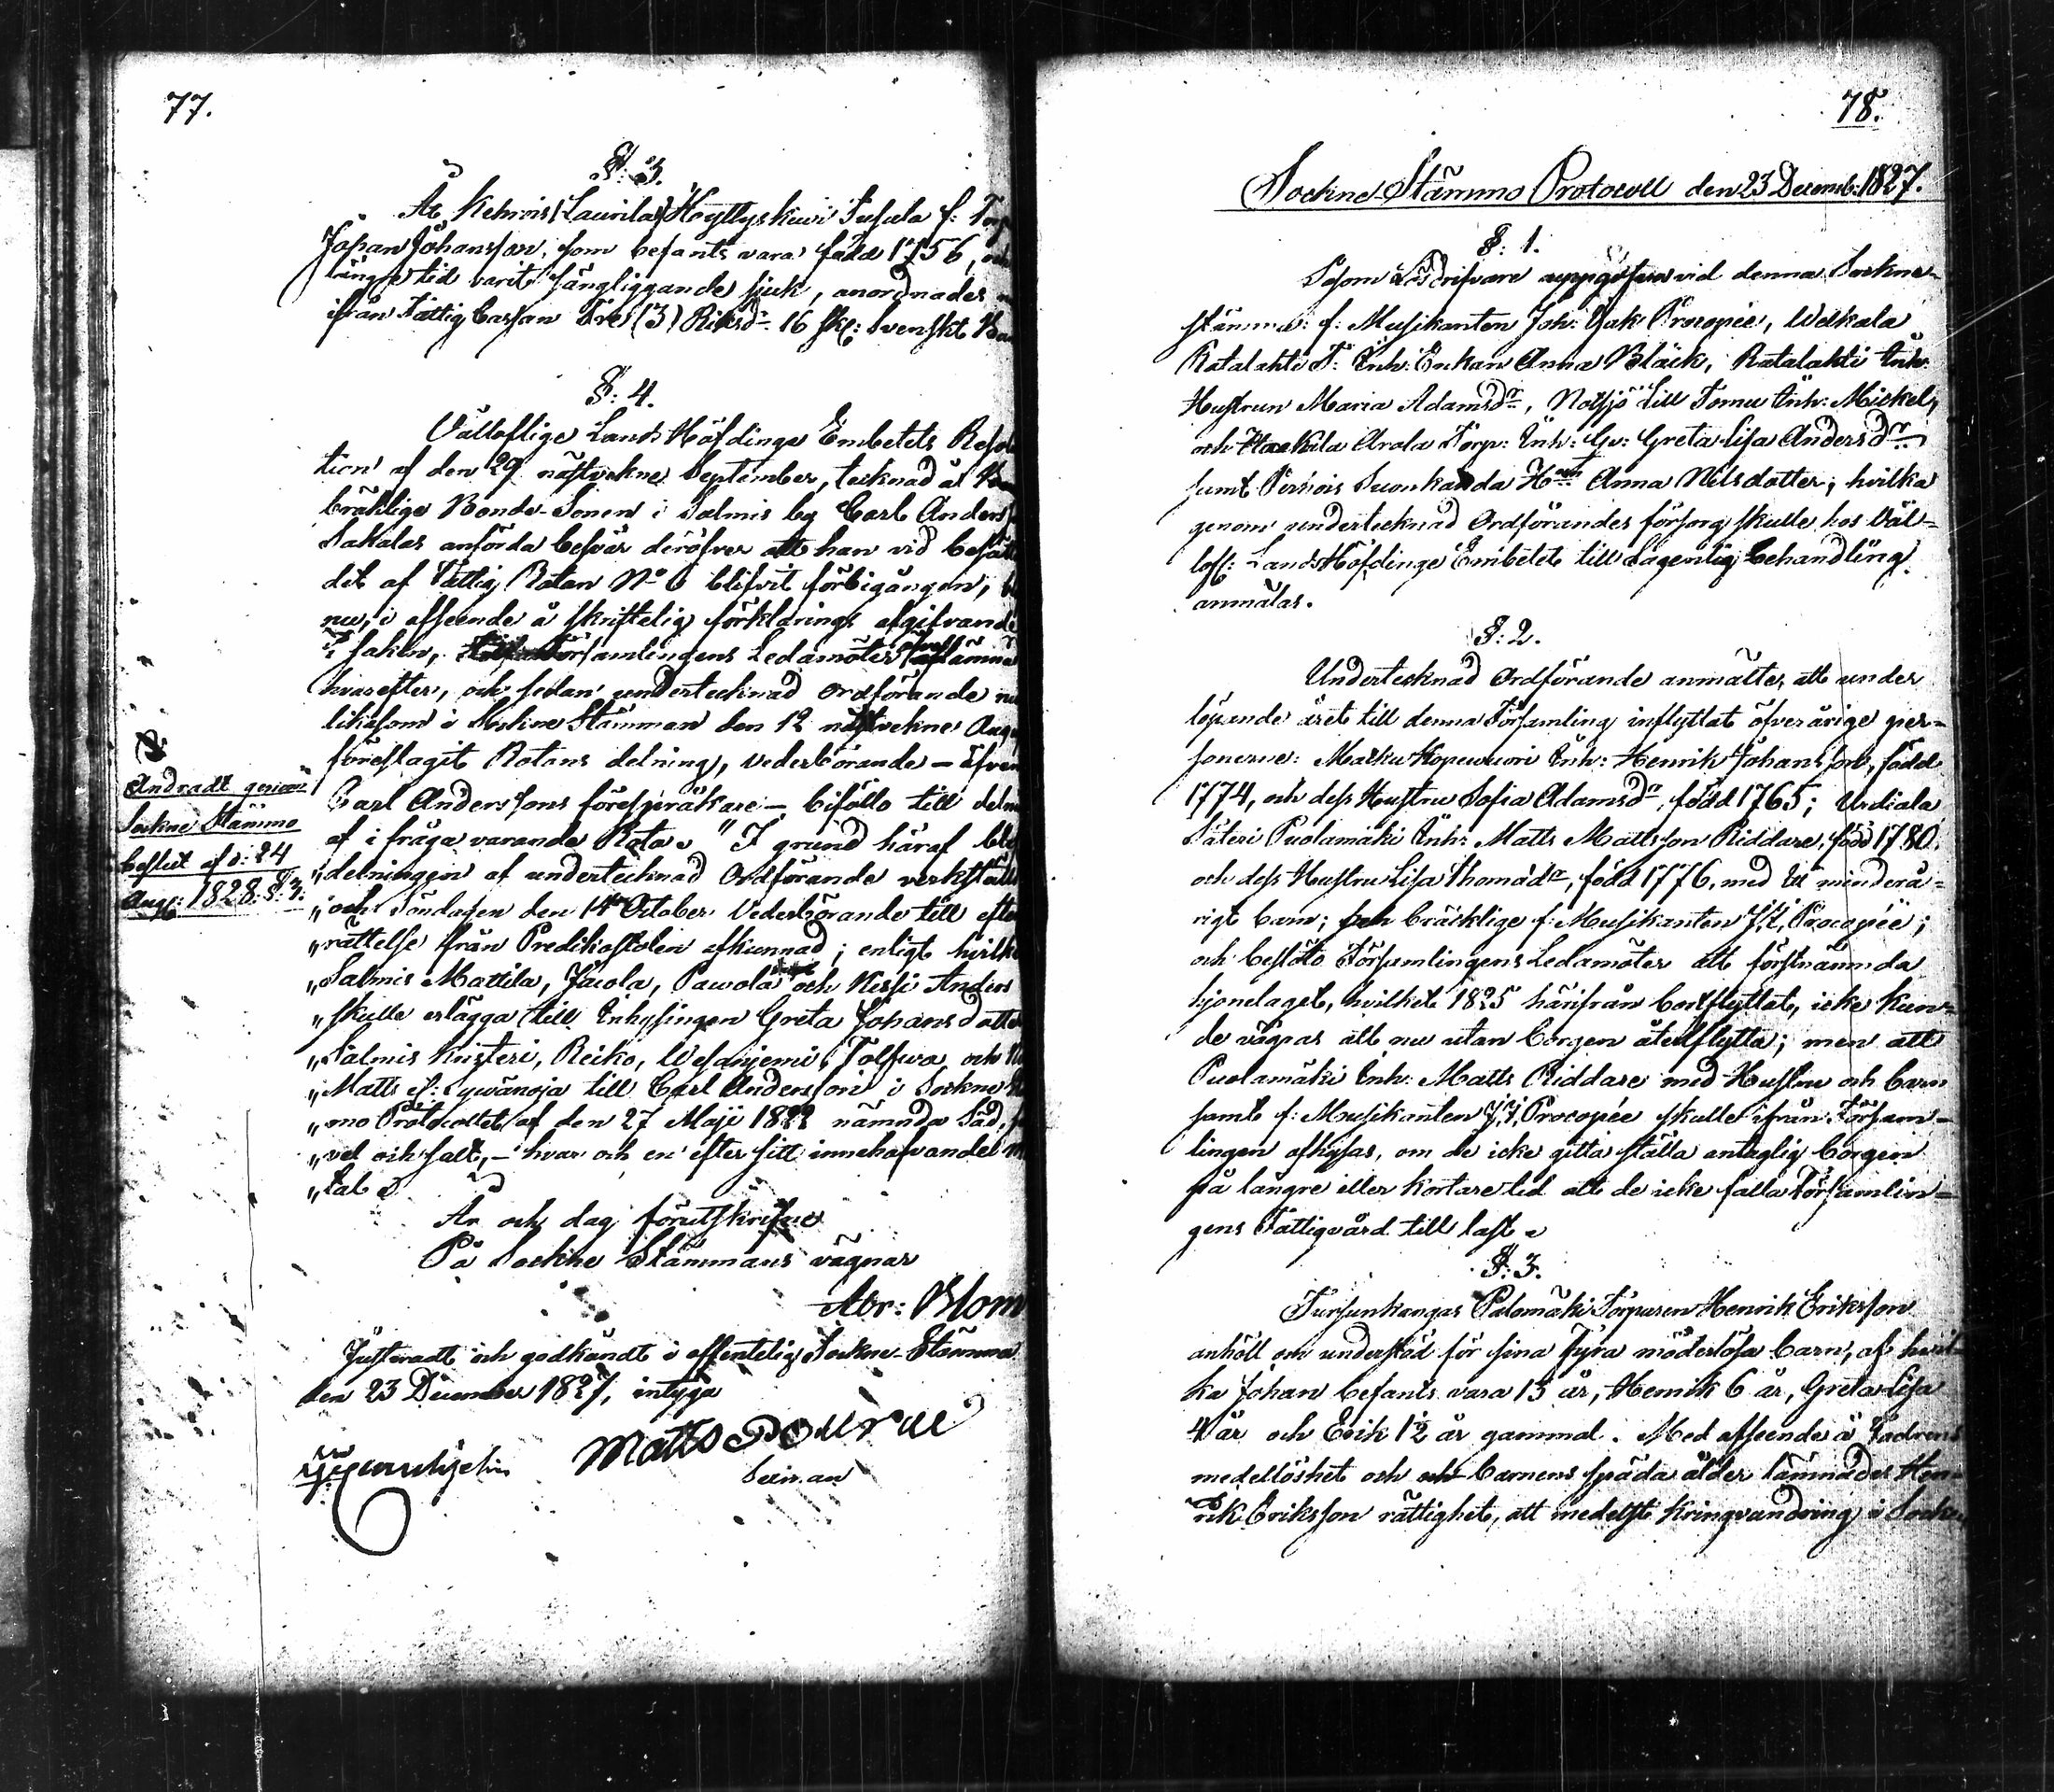 77.
§: 3.
Åt Kehrois (Laurila) Höyttyskuri Tufula f: Torp
Johan Johansson, som befants vara född 1756, och
längre tid varit sängliggande sjuk, anordnades
ifrån Fattig Cassan Tre (3) Riksd:r 16 sk: Svenskt
§: 4.
Välloflige Lands Höfdinge Embetets Resolu
tion af den 29 nästvekne September, tecknad å
bräklige Bonde-Sonen i Salmis by Carl Anders
Sakalas anförda besvär deröfver att han vid
det af Fattig Rotan N:o 6 blifvit förbigången,
nu, i afseende å skriftelig förklarings afgifvande
i saken, Församlingens Ledamöter
hvarefter, och sedan undertecknad Ordförande
likasom i Sockne Stämman den 12 nästvekne Aug
föreslagit Rotans delning, vederbörande – äfven
Carl Anderssons förespråkare – biföllo till deln
af i fråga varande Rota. "I grund häraf
"delningen af undertecknad Ordförande verkställ
"och Söndagen den 14 October Vederbörande till efter
"rättelse ifrån Predikostolen afkunnad; enligt hvilke
"Salmis Mattila, Jacola, Pawola och Kissi Anders
"skulle erlägga till Inhysingen Greta Johansdotter
"Salmis Knisteri, Reiko, Wesanjemi, Tolfwa och
"Matts till Carl Andersson i Sockne
"mo Protocollet af den 27 Maji 1822 nämnda Säd,
"vel och salt, – hvar och en efter sitt innehafvande
"tal.
År och dag förutskrifne
På Sockne Stämmans vägnar
Abr: Blom
Justeradt och godkändt i offentelig Sockne-Stämma
den 23 December 1827, intyga
Matts
§:
Ändradt genom
Sockne Stämmo
beslut af d: 24
Aug: 1828. §: 3.
78.
Sockne-Stämmo Protocoll den 23 Decemb: 1827.
§: 1.
Såsom Lösdrifvare uppgåfvos vid denna Sockne-
stämma: f: Musikanten Joh: Jak: Procopée, Welkala
Ratalahti T: Inh: Enkan Anna Bläck, Ratalahti Inh:
Hustrun Maria Adamsd:r, Notsjö Till Tornu Inh: Mickel,
och Haakila Arola Torp: Inh: Qv: Greta Lisa Andersd:r
samt Pernois Suonkanda Anna Nilsdotter; hvilka
genom undertecknad Ordförandes försorg skulle hos Väl-
lofl: LandsHöfdinge Embetet till Lagenlig behandling
anmälas.
§: 2.
Undertecknad Ordförande anmälte, att under
löpande året till denna Församling inflyttat öfverårige per-
sonerne: Matku Kopenwuori Inh: Henrik Johansson, född
1774, och dess Hustru Sofia Adamsd:r, född 1765; Urdiala
Säteri Puolamäki Inh: Matts Mattsson Riddare, född 1780,
och dess Hustru Lisa Thomasd:r, född 1776, med Ett minderå-
rigt barn; och bräcklige f: Musikanten J: J: Procopée;
och beslöto Församlingens Ledamöter att förstnämnda
hjonelaget, hvilket 1825 härifrån bortflyttat, icke kun-
de vägras att nu utan borgen återflytta; men att
Puolamäki Inh: Matts Riddare med Hustru och barn
samt f: Musikanten J: J: Procopée skulle ifrån Försam-
lingen afhysas, om de icke gitta ställa antaglig borgen
på längre eller kortare tid att de icke falla Församlin-
gens Fattigvård till last.
§: 3.
Tursunkangas Palomäki Torparen Henrik Eriksson
anhöll om understöd för sina Fyra möderlösa barn, af hvil-
ka Johan befants vara 13 år, Henrik 6 år, Greta Lisa
4 år och Erik 1½ år gammal. Med afseende å Fadrens
medellöshet och barnens späda ålder lämnades Hen-
rik Eriksson rättighet, att medelst kringvandring i Socken